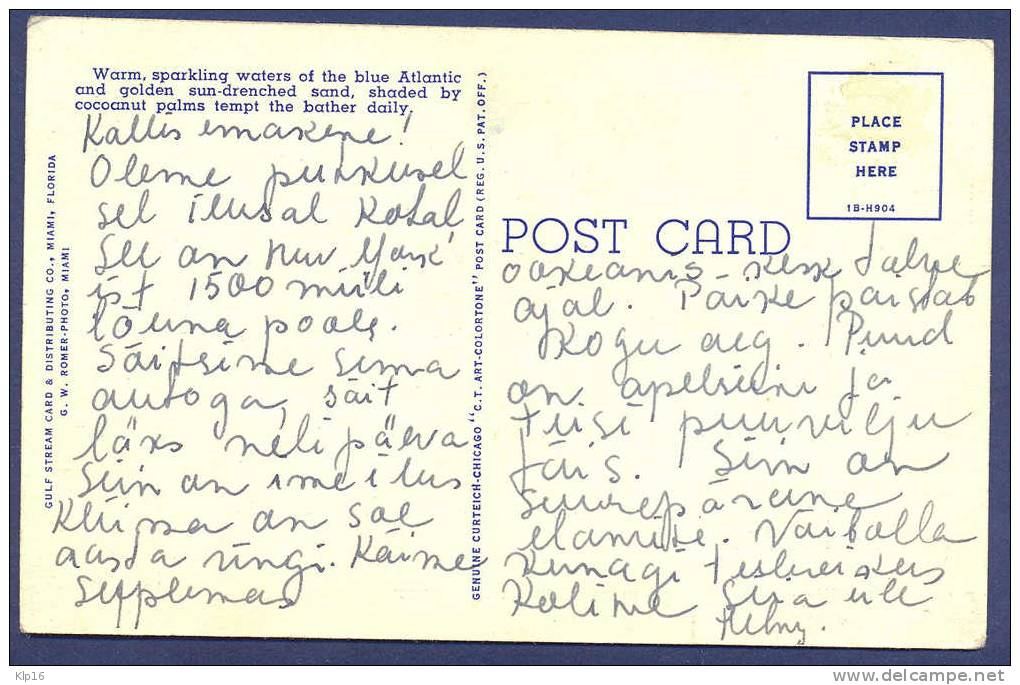 Warm, sparkling waters of the blue Atlantic
and golden sun-drenched sand, shaded by
cocoanut palms tempt the bather daily.
Kallis emakene!
Oleme puhkusel
sel ilusal kohal
See on New York
ist 1500 miili
lõuna poole.
Sõitsime sinna
autoga, sõit
läks neli päeva
Siin on ime ilus
Kliima on soe
aasta ringi. Käime
Supplemas
GULF STREAM CARD & DISTRIBUTING CO., MIAMI, FLORIDA
G. W. ROMER-PHOTO, MIAMI
GENUINE CURTEICH-CHICAGO "C.T. ART-COLORTONE" POST CARD (REG. U.S. PAT. OFF.)
PLACE
STAMP
HERE
1B-H904
POST CARD
ookeanis - kesk talve
ajal. Päike paistab
Kogu aeg. Puud
on apelsiini ja
teisi puuvilju
täis. Siin on
suurepärane
elamine. Vaibolla
kunagi
Kolime siia üle
Klp16
www.delcampe.net